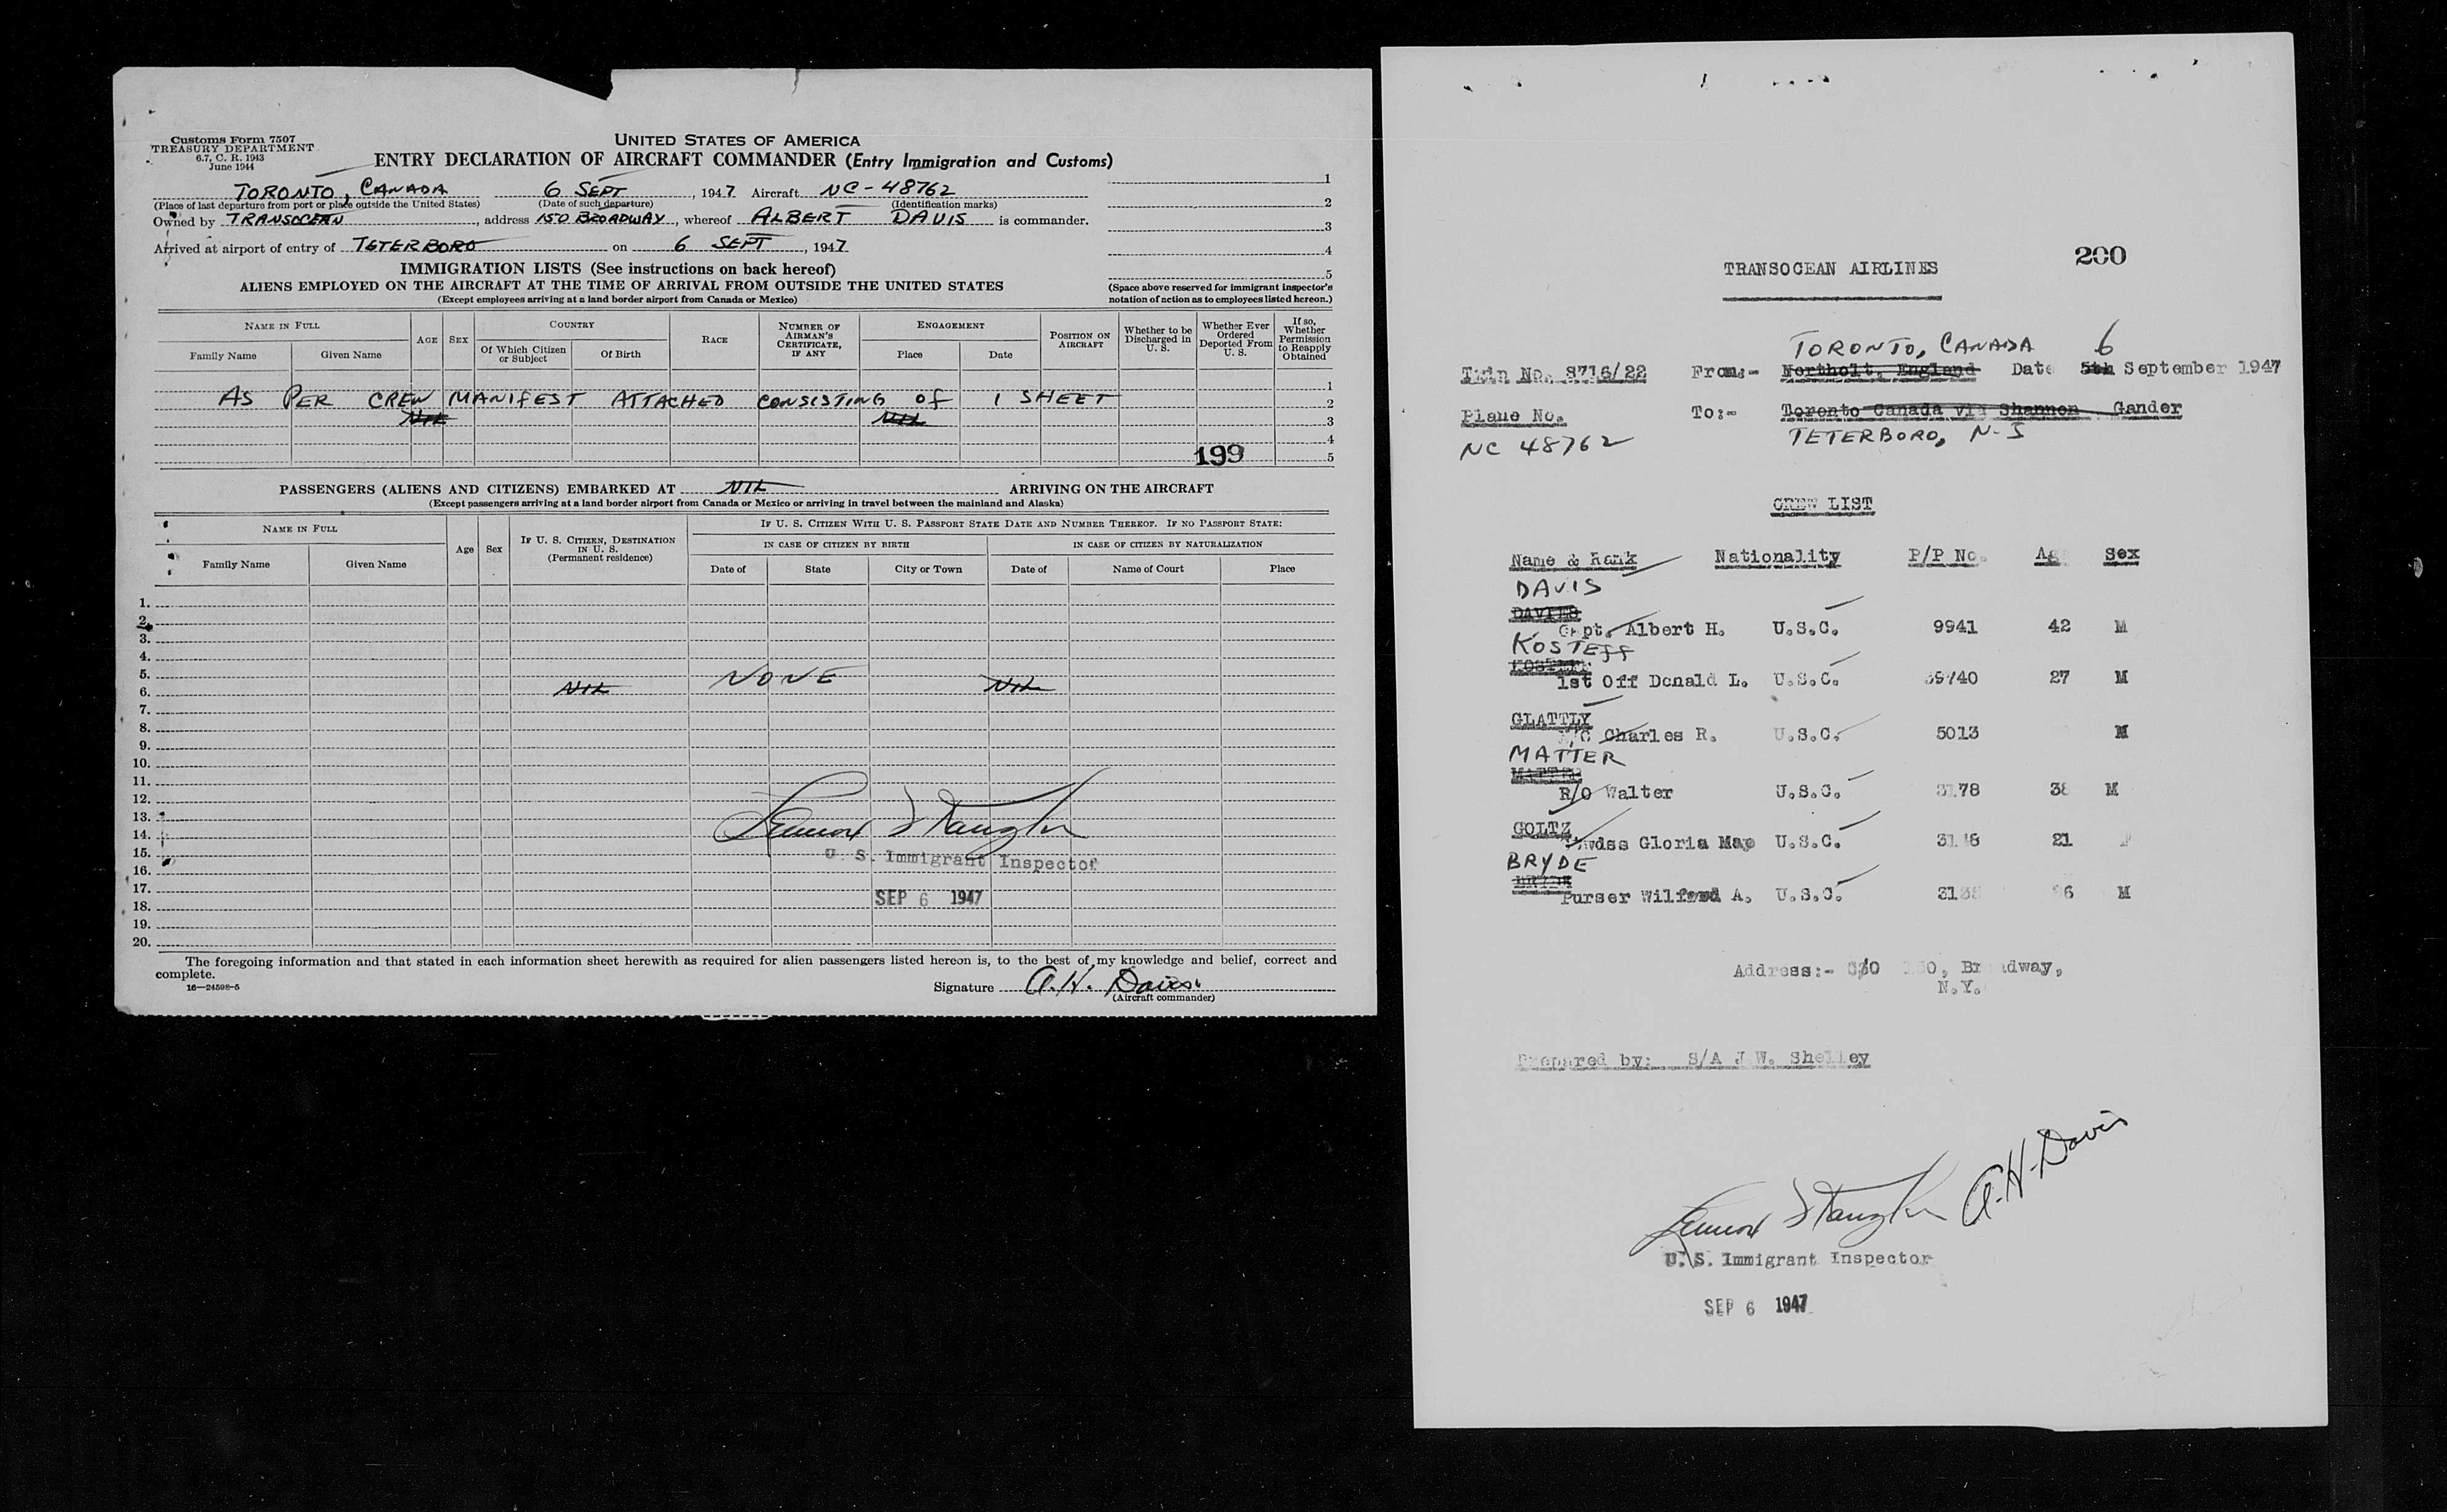 Customs Form 7507
TREASURY DEPARTMENT
6.7, C. R. 1943
June 1944
UNITED STATES OF AMERICA
ENTRY DECLARATION OF AIRCRAFT COMMANDER (Entry Immigration and Customs)
TORONTO, CANADA 6 SEPT, 1947 Aircraft NC-48762
(Place of last departure from port or place outside the United States) (Date of such departure) (Identification marks)
Owned by TRANSOCEAN, address 150 BROADWAY, whereof ALBERT DAVIS is commander.
Arrived at airport of entry of TETERBORO on 6 SEPT, 1947
1
2
3
4
5
(Space above reserved for immigrant inspector's notation of action as to employees listed hereon.)
IMMIGRATION LISTS (See instructions on back hereof)
ALIENS EMPLOYED ON THE AIRCRAFT AT THE TIME OF ARRIVAL FROM OUTSIDE THE UNITED STATES
(Except employees arriving at a land border airport from Canada or Mexico)
NAME IN FULL
Family Name Given Name
AGE SEX
COUNTRY
Of Which Citizen or Subject Of Birth
RACE
NUMBER OF AIRMAN'S CERTIFICATE, IF ANY
ENGAGEMENT
Place Date
POSITION ON AIRCRAFT
Whether to be Discharged in U. S.
Whether Ever Ordered Deported From U. S.
If so, Whether Permission to Reapply Obtained
1
AS PER CREW MANIFEST ATTACHED CONSISTING OF 1 SHEET 2
NIL NIL 3
4
199 5
PASSENGERS (ALIENS AND CITIZENS) EMBARKED AT NIL ARRIVING ON THE AIRCRAFT
(Except passengers arriving at a land border airport from Canada or Mexico or arriving in travel between the mainland and Alaska)
NAME IN FULL
Family Name Given Name
Age Sex
IF U. S. CITIZEN, DESTINATION IN U. S.
(Permanent residence)
IF U. S. CITIZEN WITH U. S. PASSPORT STATE DATE AND NUMBER THEREOF. IF NO PASSPORT STATE:
IN CASE OF CITIZEN BY BIRTH IN CASE OF CITIZEN BY NATURALIZATION
Date of State City or Town Date of Name of Court Place
1.
2.
3.
4.
5.
6. NIL NONE NIL
7.
8.
9.
10.
11.
12.
13.
14.
15.
U. S. Immigrant Inspector
16.
17.
SEP 6 1947
18.
19.
20.
The foregoing information and that stated in each information sheet herewith as required for alien passengers listed hereon is, to the best of my knowledge and belief, correct and
complete.
16—24598-5
Signature A. H. Davis
(Aircraft commander)
200
TRANSOCEAN AIRLINES
TORONTO, CANADA 6
Twin No. 8716/22 From:- Northolt, England Date 5th September 1947
Plane No. To:- Toronto Canada via Shannon Gander
NC 48762 TETERBORO, N-J
CREW LIST
Name & Rank Nationality P/P No. Age Sex
DAVIS
DAVIES
Capt. Albert H. U.S.C. 9941 42 M
KOSTEFF
1st Off Donald L. U.S.C. 39740 27 M
GLATTLY
Charles R. U.S.C. 5013 M
MATTER
R/O Walter U.S.C. 3178 38 M
GOLTZ
Gloria Mae U.S.C. 21
BRYDE
Purser Wilfred A. U.S.C. M
Address:- Broadway,
N.Y.
Prepared by: S/A J W. Shelley
A. H. Davis
U. S. Immigrant Inspector
SEP 6 1947